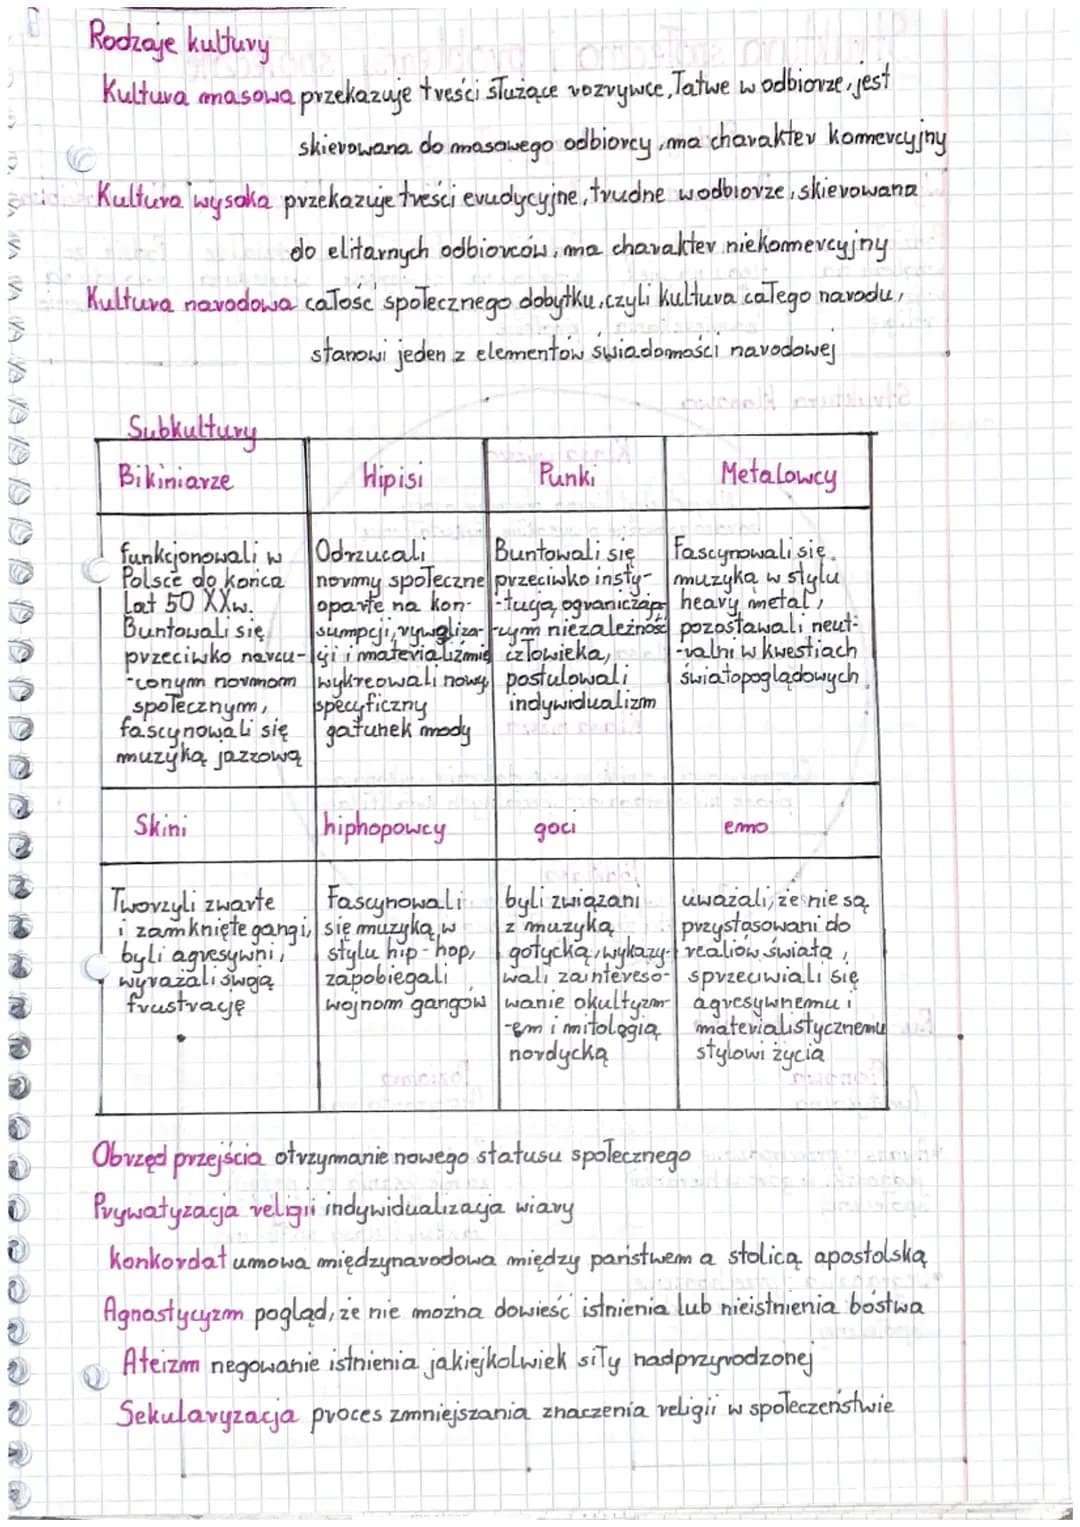 Rodzaje kultury
Kultura masowa przekazuje treści służące rozrywce, łatwe w odbiorze, jest
skierowana do masowego odbiorcy, ma charakter komercyjny
Kultura wysoka przekazuje treści erudycyjne, trudne w odbiorze, skierowana
do elitarnych odbiorców, ma charakter niekomercyjny
Kultura narodowa całość społecznego dobytku, czyli kultura całego narodu,
stanowi jeden z elementów świadomości narodowej
Subkultury
Bikiniarze
Hipisi
Punki
Metalowcy
funkcjonowali w
Polsce do końca
lat 50 XXw.
Buntowali się
przeciwko narzu-
-conym normom
społecznym,
fascynowali się
muzyką jazzową
Odrzucali
normy społeczne
oparte na kon-
sumpcji, rywaliza-
cji i materializmie
wykreowali nowy
specyficzny
gatunek mody
Buntowali się
przeciwko insty-
-tucją ograniczają
-cym niezależność
człowieka,
postulowali
indywidualizm
Fascynowali się
muzyką w stylu
heavy metal,
pozostawali neut-
-ralni w kwestiach
światopoglądowych.
Skini
hiphopowcy
goci
emo
Tworzyli zwarte
i zamknięte gangi,
byli agresywni,
wyrażali swoją
frustrację
Fascynowali
się muzyką w
stylu hip-hop,
zapobiegali
wojnom gangów
byli związani
z muzyką
gotycką, wykazy-
wali zaintereso-
wanie okultyzm-
-em i mitologią
nordycką
uważali, że nie są
przystosowani do
realiów świata,
sprzeciwiali się
agresywnemu i
materialistycznemu
stylowi życia
Obrzęd przejścia otrzymanie nowego statusu społecznego
Prywatyzacja religii indywidualizacja wiary
konkordat umowa międzynarodowa między państwem a stolicą apostolską
Agnostycyzm pogląd, że nie można dowieść istnienia lub nieistnienia bóstwa
Ateizm negowanie istnienia jakiejkolwiek siły nadprzyrodzonej
Sekularyzacja proces zmniejszania znaczenia religii w społeczeństwie